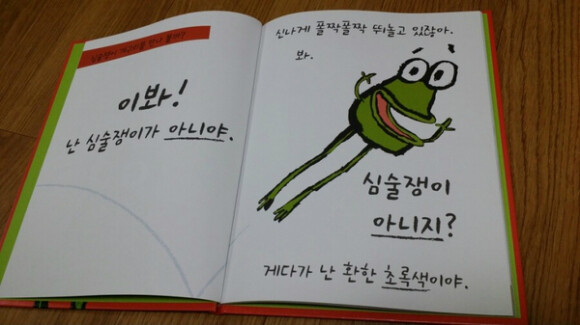 심술쟁이
이봐!
난 심술쟁이가 아니야.
신나게 폴짝폴짝 뛰놀고 있잖아.
봐.
심술쟁이
아니지?
게다가 난 환한 초록색이야.